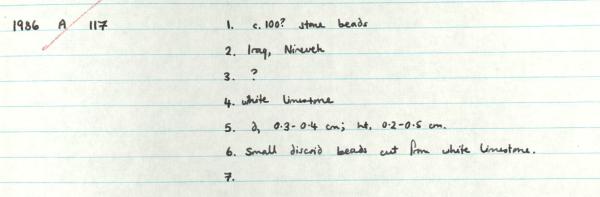 1986 A 117 1. c. 100? stone beads
2. Iraq, Nineveh
3. ?
4. white limestone
5. d, 0.3-0.4 cm; ht, 0.2-0.5 cm.
6. Small discoid beads cut from white limestone.
7.